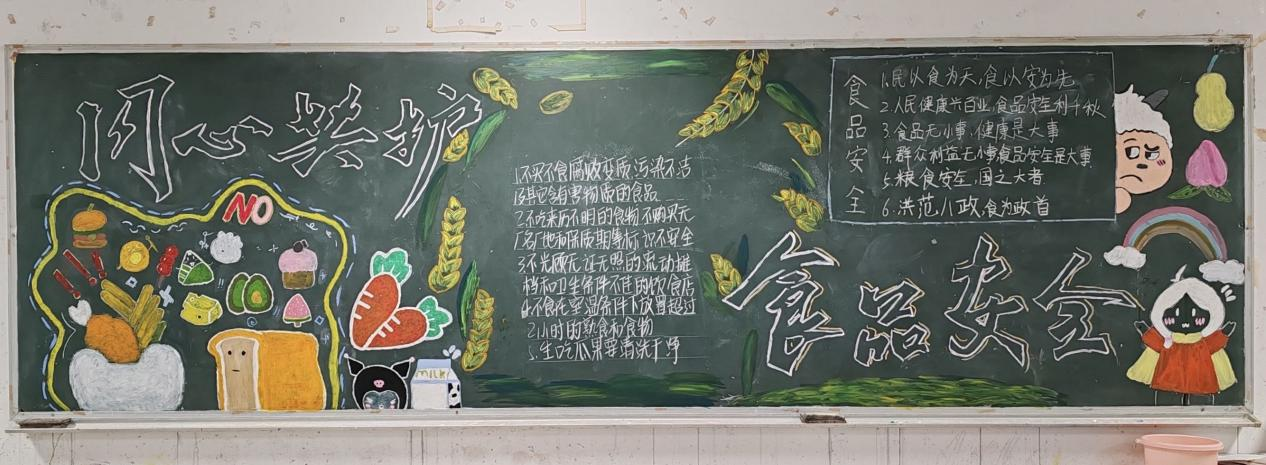 同心共护
NO
milk
1.不买不食腐败变质、污染不洁
及其它含有害物质的食品
2.不吃来历不明的食物,不购买无
厂名厂地和保质期等标识不安全
3.不光顾无证无照的流动摊
档和卫生条件不佳的饮食店
4.不食在室温条件下放置超过
2小时的熟食和食物
5.生吃瓜果要清洗干净
食品安全
1.民以食为天,食以安为先
2.人民健康兴百业,食品安全利千秋
3.食品无小事,健康是大事
4.群众利益无小事食品安全是大事
5.粮食安全,国之大者
6.洪范八政,食为政首
食品安全